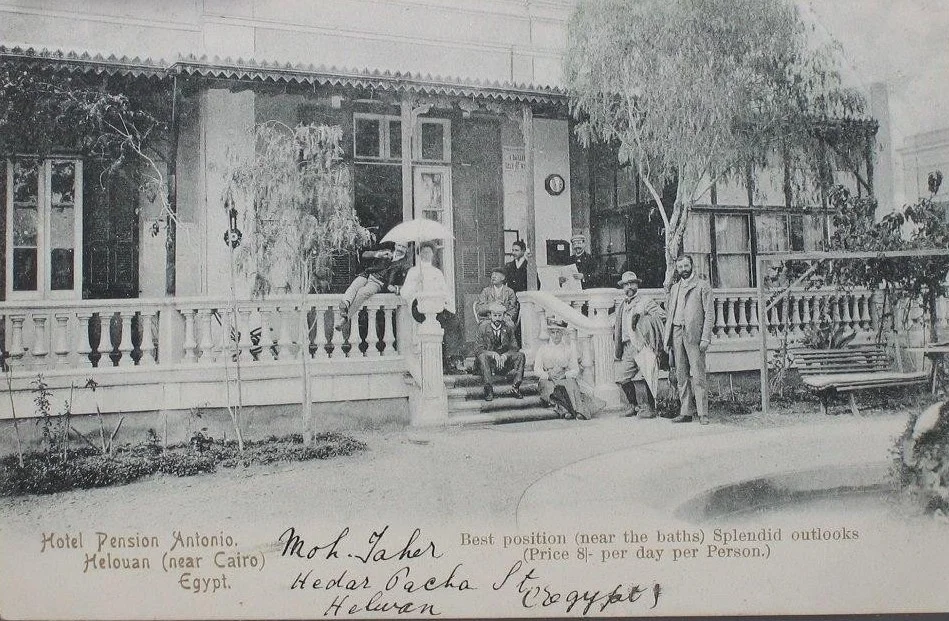 Hotel Pension Antonio.
Helouan (near Cairo)
Egypt.
Moh. Taher
Hedar Pacha St
Helwan (Egypt)
Best position (near the baths) Splendid outlooks
(Price 8/- per day per Person.)